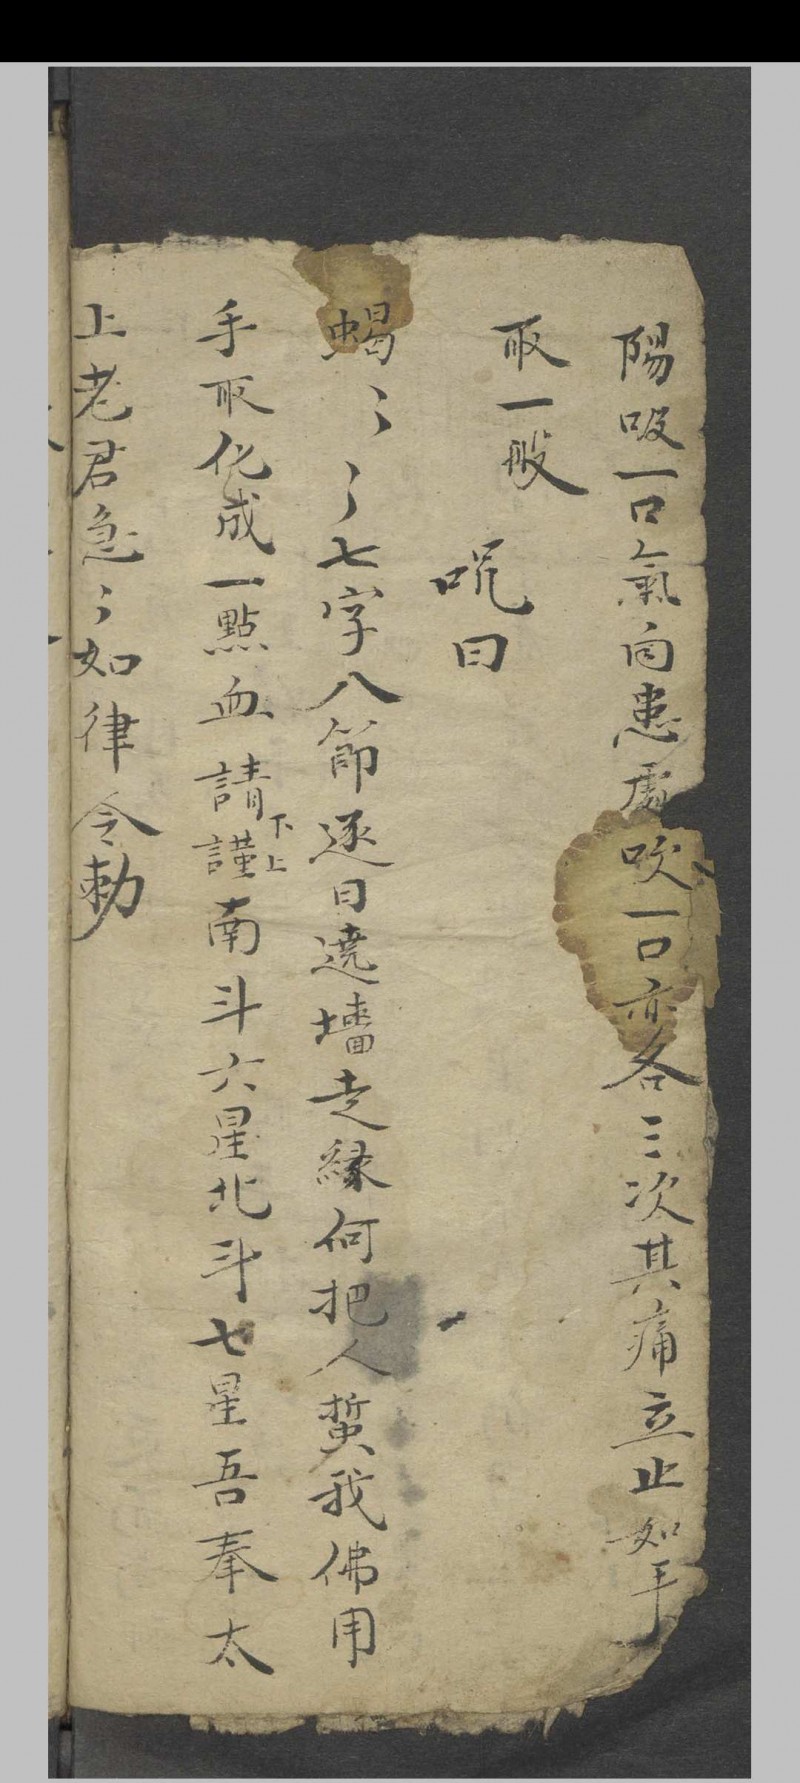 陽吸一口氣向患處吹一口亦各三次其痛立止如手
取一般
咒曰
蝎〻〻七字八節逐日遶墻走緣何把人蜇我佛用
手取化成一點血請謹下上南斗六星北斗七星吾奉太
上老君急〻如律令勅